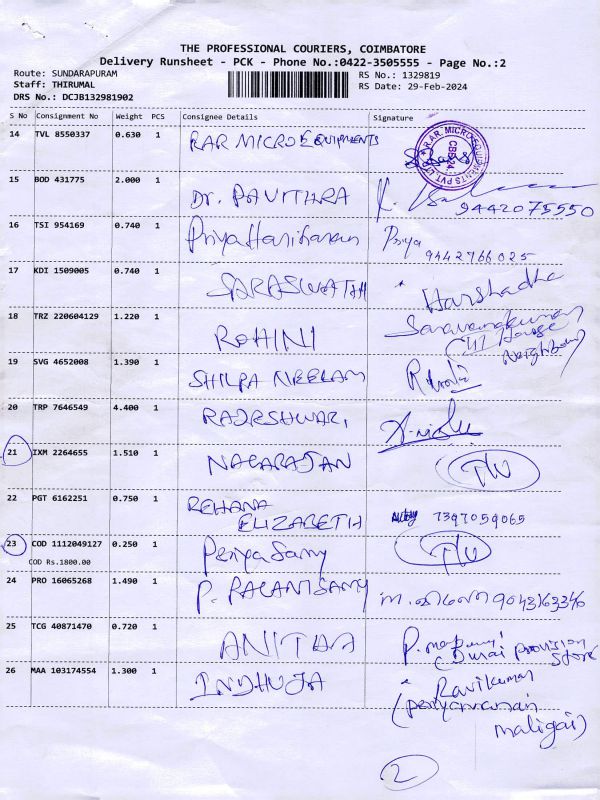 THE PROFESSIONAL COURIERS, COIMBATORE
Delivery Runsheet - PCK - Phone No.:0422-3505555 - Page No.:2
Route: SUNDARAPURAM
Staff: THIRUMAL
DRS No.: DCJB132981902
RS No.: 1329819
RS Date: 29-Feb-2024
S No Consignment No Weight PCS Consignee Details Signature
14 TVL 8550337 0.630 1 RAR MICRO EQUIPMENTS
RAR. MICRO EQUIPMENTS PVT. LTD CBE-24
15 BOD 431775 2.000 1 Dr. PAVITHRA
9442075550
16 TSI 954169 0.740 1 PriyaHariharan Priya
9442766025
17 KDI 1509005 0.740 1 SARASWATHI Harshadha
18 TRZ 220604129 1.220 1 ROHINI Saravanakumar
House
Neighbour)
19 SVG 4652008 1.390 1 SHILPA NEELAM
20 TRP 7646549 4.400 1 RAJESHWARI
21 IXM 2264655 1.510 1 NAGARAJAN
22 PGT 6162251 0.750 1 REHANA
ELIZABETH 7397059065
23 COD 1112049127 0.250 1 PeriyaSamy
COD Rs.1800.00
24 PRO 16065268 1.490 1 P. PALANISAMY
25 TCG 40871470 0.720 1 ANITHA
Durai provision
Store
26 MAA 103174554 1.300 1 INDHUJA Ravikumar
maligai)
2